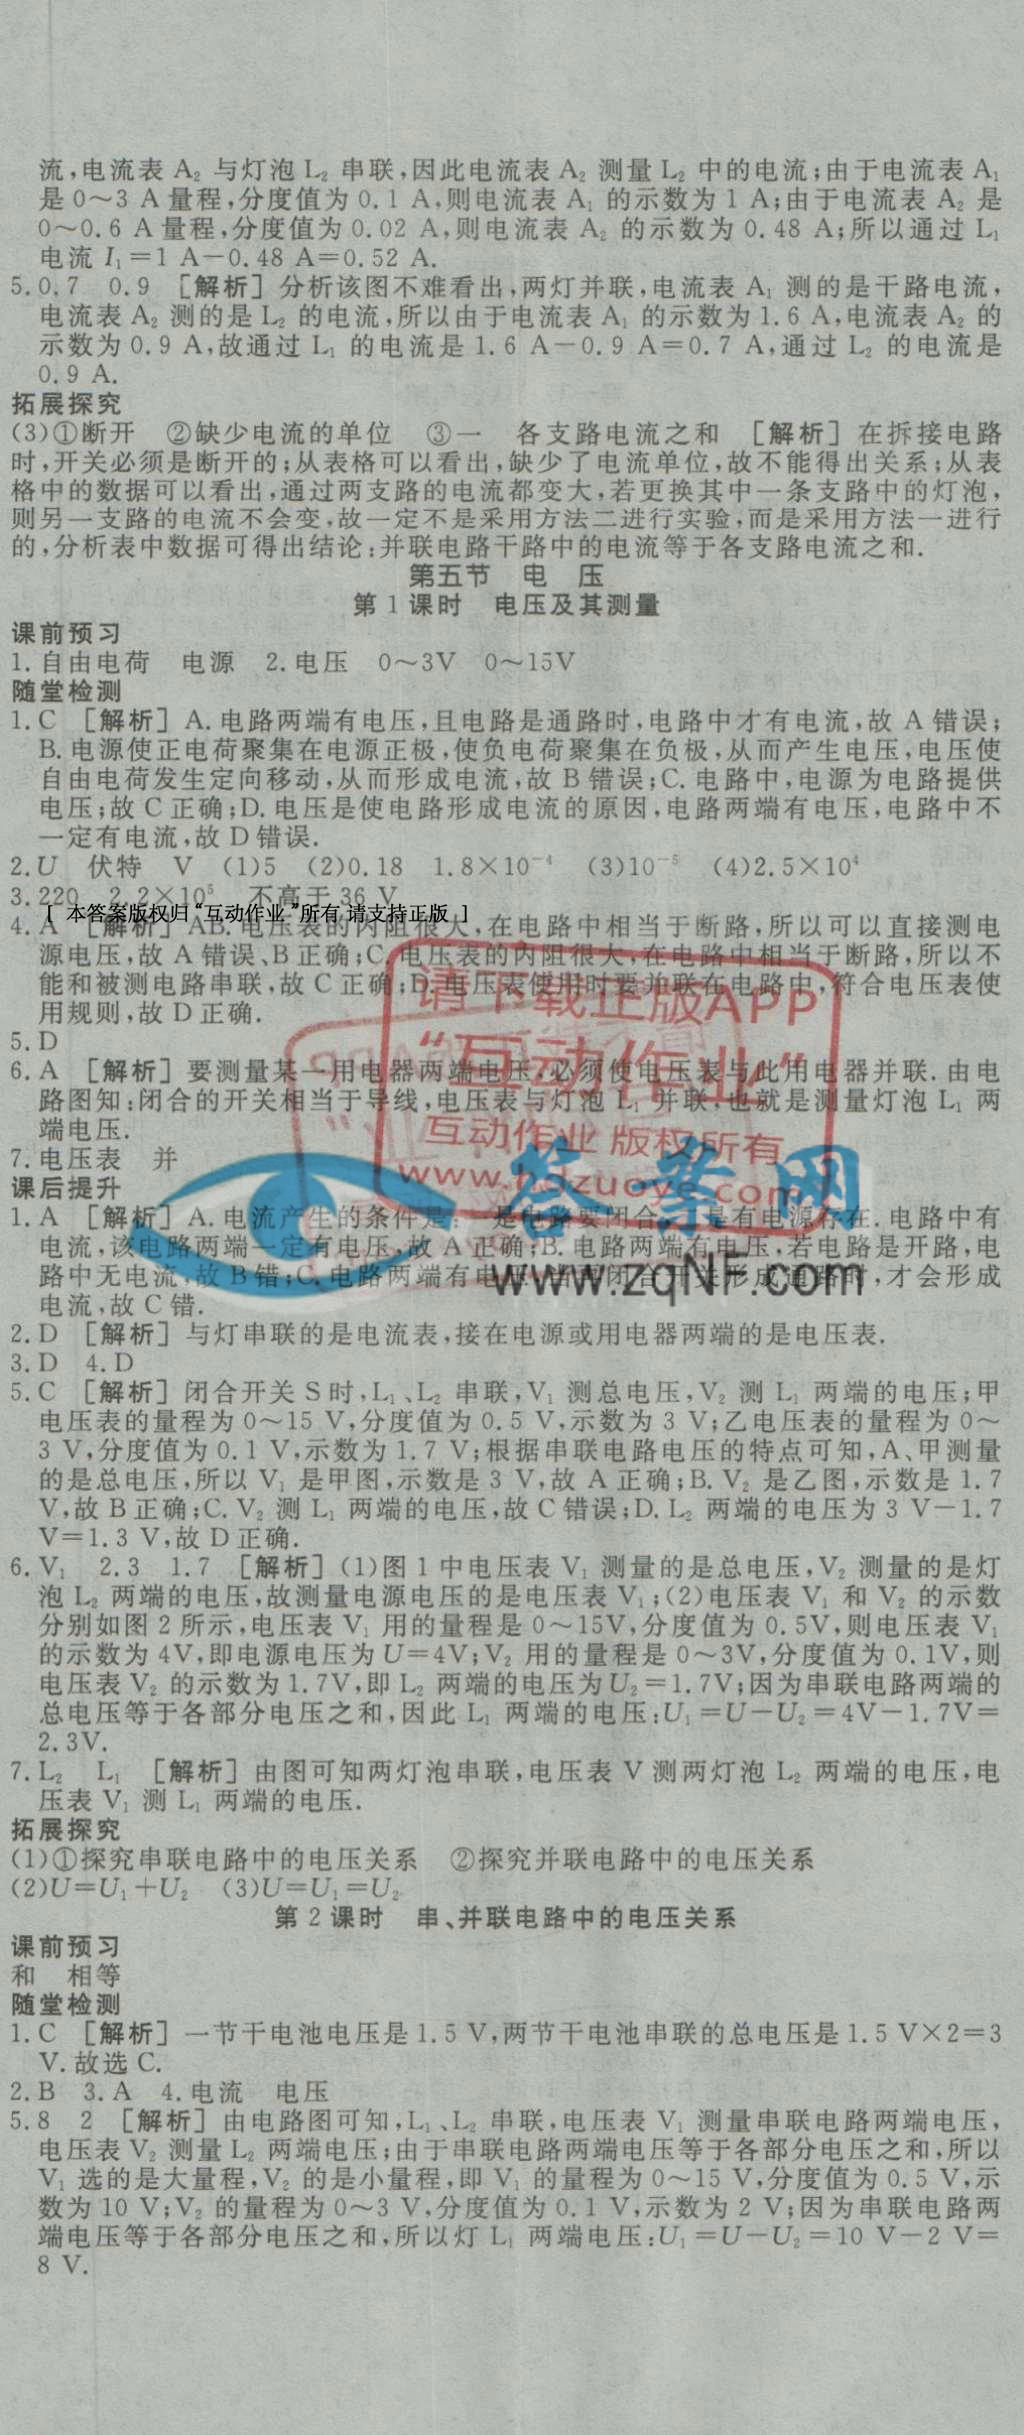 流,电流表 A₂ 与灯泡 L₂ 串联,因此电流表 A₂ 测量 L₂ 中的电流;由于电流表 A₁
是 0～3 A 量程,分度值为 0.1 A,则电流表 A₁ 的示数为 1 A;由于电流表 A₂ 是
0～0.6 A 量程,分度值为 0.02 A,则电流表 A₂ 的示数为 0.48 A;所以通过 L₁
电流 I₁=1 A-0.48 A=0.52 A.
5.0.7 0.9 [解析]分析该图不难看出,两灯并联,电流表 A₁ 测的是干路电流,
电流表 A₂ 测的是 L₂ 的电流,所以由于电流表 A₁ 的示数为 1.6 A,电流表 A₂ 的
示数为 0.9 A,故通过 L₁ 的电流是 1.6 A-0.9 A=0.7 A,通过 L₂ 的电流是
0.9 A.
拓展探究
(3)①断开 ②缺少电流的单位 ③一 各支路电流之和 [解析]在拆接电路
时,开关必须是断开的;从表格可以看出,缺少了电流单位,故不能得出关系;从表
格中的数据可以看出,通过两支路的电流都变大,若更换其中一条支路中的灯泡,
则另一支路的电流不会变,故一定不是采用方法二进行实验,而是采用方法一进行
的,分析表中数据可得出结论:并联电路干路中的电流等于各支路电流之和.
第五节 电 压
第 1 课时 电压及其测量
课前预习
1.自由电荷 电源 2.电压 0～3V 0～15V
随堂检测
1.C [解析]A.电路两端有电压,且电路是通路时,电路中才有电流,故 A 错误;
B.电源使正电荷聚集在电源正极,使负电荷聚集在负极,从而产生电压,电压使
自由电荷发生定向移动,从而形成电流,故 B 错误;C.电路中,电源为电路提供
电压;故 C 正确;D.电压是使电路形成电流的原因,电路两端有电压,电路中不
一定有电流,故 D 错误.
2.U 伏特 V (1)5 (2)0.18 1.8×10⁻⁴ (3)10⁻⁵ (4)2.5×10⁴
3.220 2.2×10⁵ 不高于 36 V
[ 本答案版权归“互动作业”所有 请支持正版 ]
4.A [解析]AB.电压表的内阻很大,在电路中相当于断路,所以可以直接测电
源电压,故 A 错误、B 正确;C.电压表的内阻很大,在电路中相当于断路,所以不
能和被测电路串联,故 C 正确;D.电压表使用时要并联在电路中,符合电压表使
用规则,故 D 正确.
5.D
6.A [解析]要测量某一用电器两端电压,必须使电压表与此用电器并联.由电
路图知:闭合的开关相当于导线,电压表与灯泡 L₁ 并联,也就是测量灯泡 L₁ 两
端电压.
7.电压表 并
请下载正版APP
“互动作业”
互动作业 版权所有
www.hdzuoye.com
答案网
www.zqNF.com
课后提升
1.A [解析]A.电流产生的条件是:一是电路要闭合,是有电源存在.电路中有
电流,该电路两端一定有电压,故 A 正确;B.电路两端有电压,若电路是开路,电
路中无电流,故 B 错;C.电路两端有电压,当闭合开关形成通路时,才会形成
电流,故 C 错.
2.D [解析]与灯串联的是电流表,接在电源或用电器两端的是电压表.
3.D 4.D
5.C [解析]闭合开关 S 时,L₁、L₂ 串联,V₁ 测总电压,V₂ 测 L₁ 两端的电压;甲
电压表的量程为 0～15 V,分度值为 0.5 V,示数为 3 V;乙电压表的量程为 0～
3 V,分度值为 0.1 V,示数为 1.7 V;根据串联电路电压的特点可知,A、甲测量
的是总电压,所以 V₁ 是甲图,示数是 3 V,故 A 正确;B.V₂ 是乙图,示数是 1.7
V,故 B 正确;C.V₂ 测 L₁ 两端的电压,故 C 错误;D.L₂ 两端的电压为 3 V-1.7
V=1.3 V,故 D 正确.
6.V₁ 2.3 1.7 [解析](1)图 1 中电压表 V₁ 测量的是总电压,V₂ 测量的是灯
泡 L₂ 两端的电压,故测量电源电压的是电压表 V₁;(2)电压表 V₁ 和 V₂ 的示数
分别如图 2 所示,电压表 V₁ 用的量程是 0～15V,分度值为 0.5V,则电压表 V₁
的示数为 4V,即电源电压为 U=4V;V₂ 用的量程是 0～3V,分度值为 0.1V,则
电压表 V₂ 的示数为 1.7V,即 L₂ 两端的电压为 U₂=1.7V;因为串联电路两端的
总电压等于各部分电压之和,因此 L₁ 两端的电压:U₁=U-U₂=4V-1.7V=
2.3V.
7.L₂ L₁ [解析]由图可知两灯泡串联,电压表 V 测两灯泡 L₂ 两端的电压,电
压表 V₁ 测 L₁ 两端的电压.
拓展探究
(1)①探究串联电路中的电压关系 ②探究并联电路中的电压关系
(2)U=U₁+U₂ (3)U=U₁=U₂
第 2 课时 串、并联电路中的电压关系
课前预习
和 相等
随堂检测
1.C [解析]一节干电池电压是 1.5 V,两节干电池串联的总电压是 1.5 V×2=3
V.故选 C.
2.B 3.A 4.电流 电压
5.8 2 [解析]由电路图可知,L₁、L₂ 串联,电压表 V₁ 测量串联电路两端电压,
电压表 V₂ 测量 L₂ 两端电压;由于串联电路两端电压等于各部分电压之和,所以
V₁ 选的是大量程,V₂ 的是小量程,即 V₁ 的量程为 0～15 V,分度值为 0.5 V,示
数为 10 V;V₂ 的量程为 0～3 V,分度值为 0.1 V,示数为 2 V;因为串联电路两
端电压等于各部分电压之和,所以灯 L₁ 两端电压:U₁=U-U₂=10 V-2 V=
8 V.